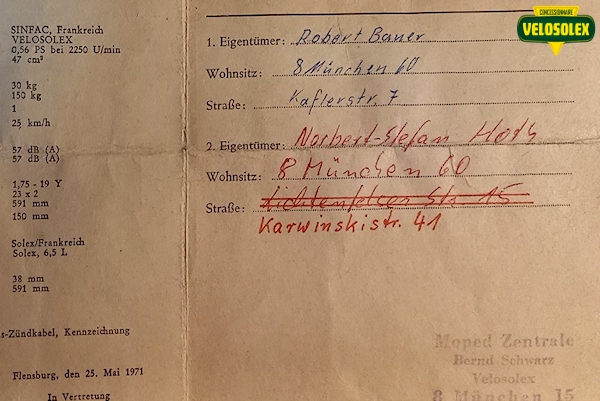 CONCESSIONNAIRE
VELOSOLEX
SINFAC, Frankreich
VELOSOLEX
0,56 PS bei 2250 U/min
47 cm³
30 kg
150 kg
1
25 km/h
57 dB (A)
57 dB (A)
1,75 - 19 Y
23 x 2
591 mm
150 mm
Solex/Frankreich
Solex, 6,5 L
38 mm
591 mm
s-Zündkabel, Kennzeichnung
Flensburg, den 25. Mai 1971
In Vertretung
1. Eigentümer: Robert Bauer
Wohnsitz: 8 München 60
Straße: Kaflerstr. 7
2. Eigentümer: Norbert-Stefan
Wohnsitz: 8 München 60
Straße: Lichtenfelser Str. 15
Karwinskistr. 41
Moped Zentrale
Bernd Schwarz
Velosolex
8 München 15